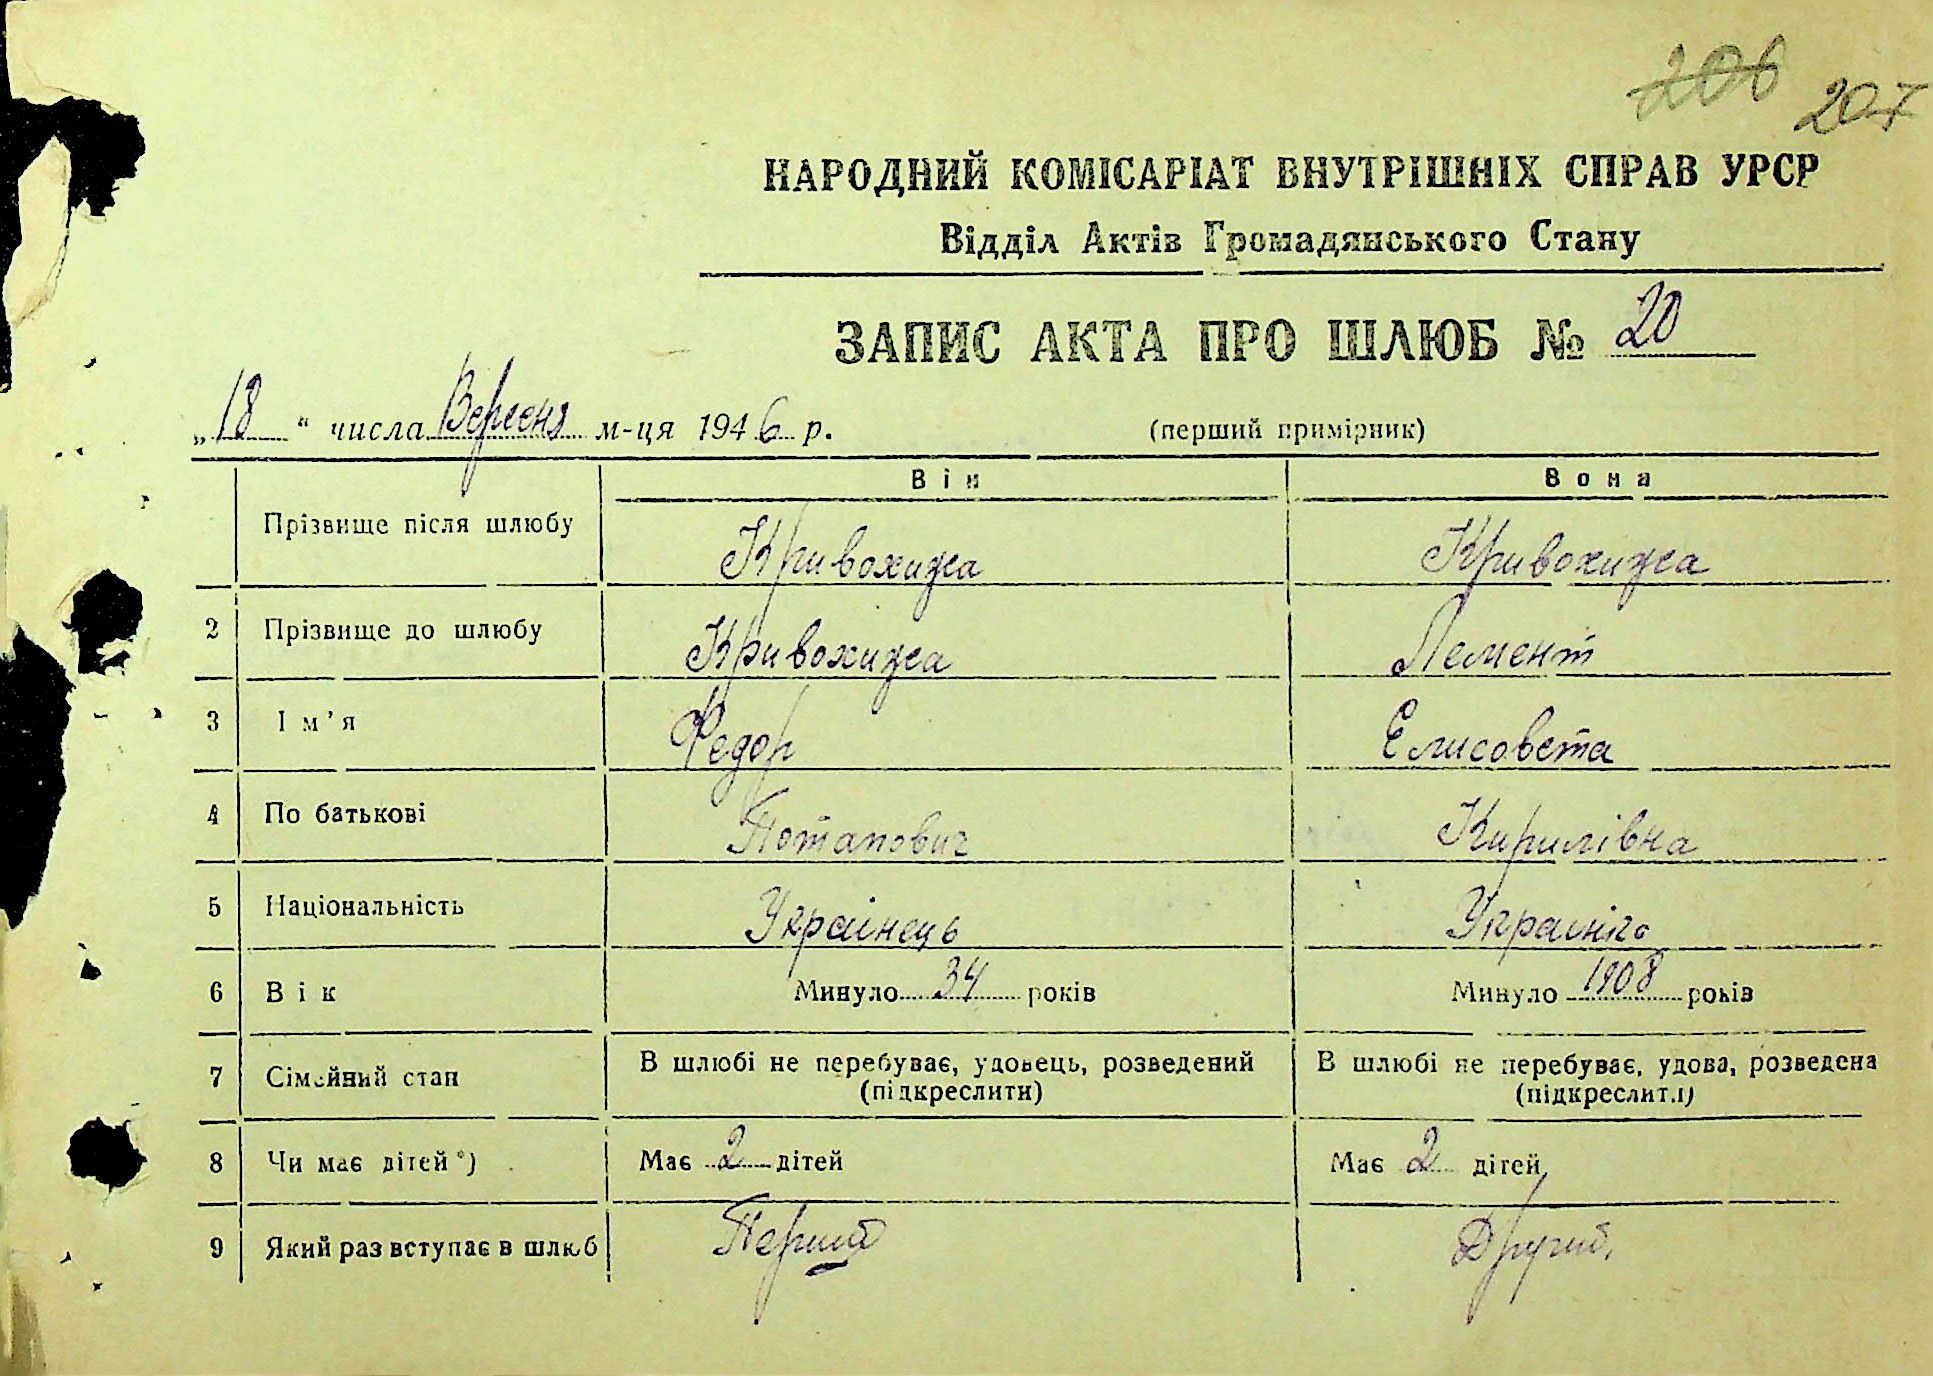 206 207
НАРОДНИЙ КОМІСАРІАТ ВНУТРІШНІХ СПРАВ УРСР
Відділ Актів Громадянського Стану
ЗАПИС АКТА ПРО ШЛЮБ № 20
„18“ числа Вересня м-ця 1946 р. (перший примірник)
Він Вона
Прізвище після шлюбу Кривохижа Кривохижа
2 Прізвище до шлюбу Кривохижа Лемент
3 Ім'я Федор Елисовета
4 По батькові Потапович Кирилівна
5 Національність Українець Українка
6 Вік Минуло 34 років Минуло 1908 років
7 Сімейний стан В шлюбі не перебуває, удовець, розведений (підкреслити) В шлюбі не перебуває, удова, розведена (підкреслити)
8 Чи має дітей*) Має 2 дітей Має 2 дітей
9 Який раз вступає в шлюб Перший Другий.